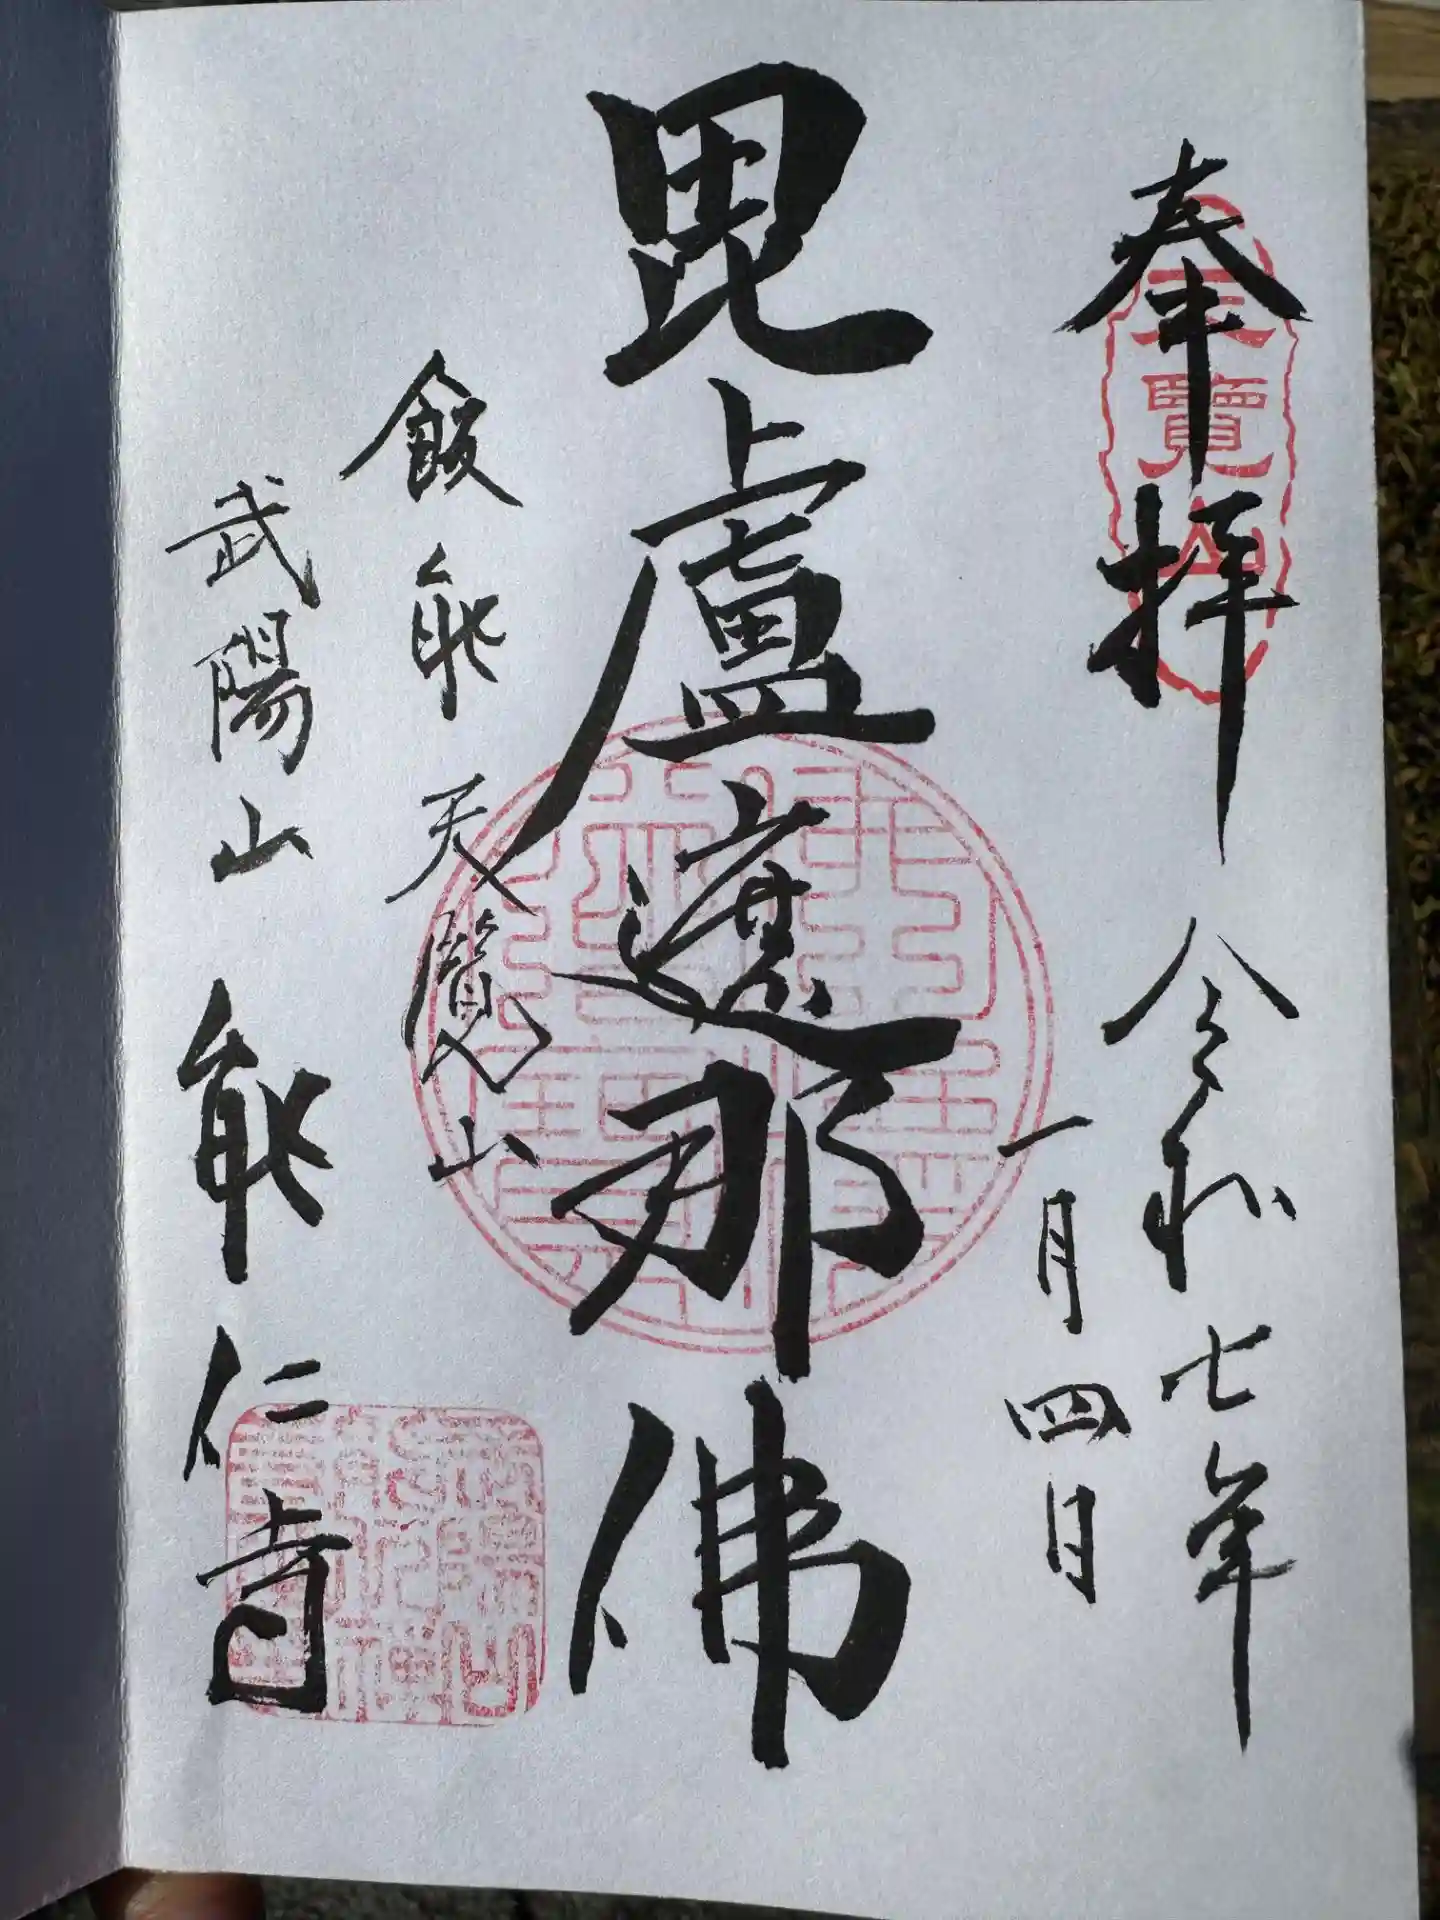 奉拝
天覧山
令和七年
一月四日
毘盧遮那佛
飯能天覧山
武陽山能仁寺